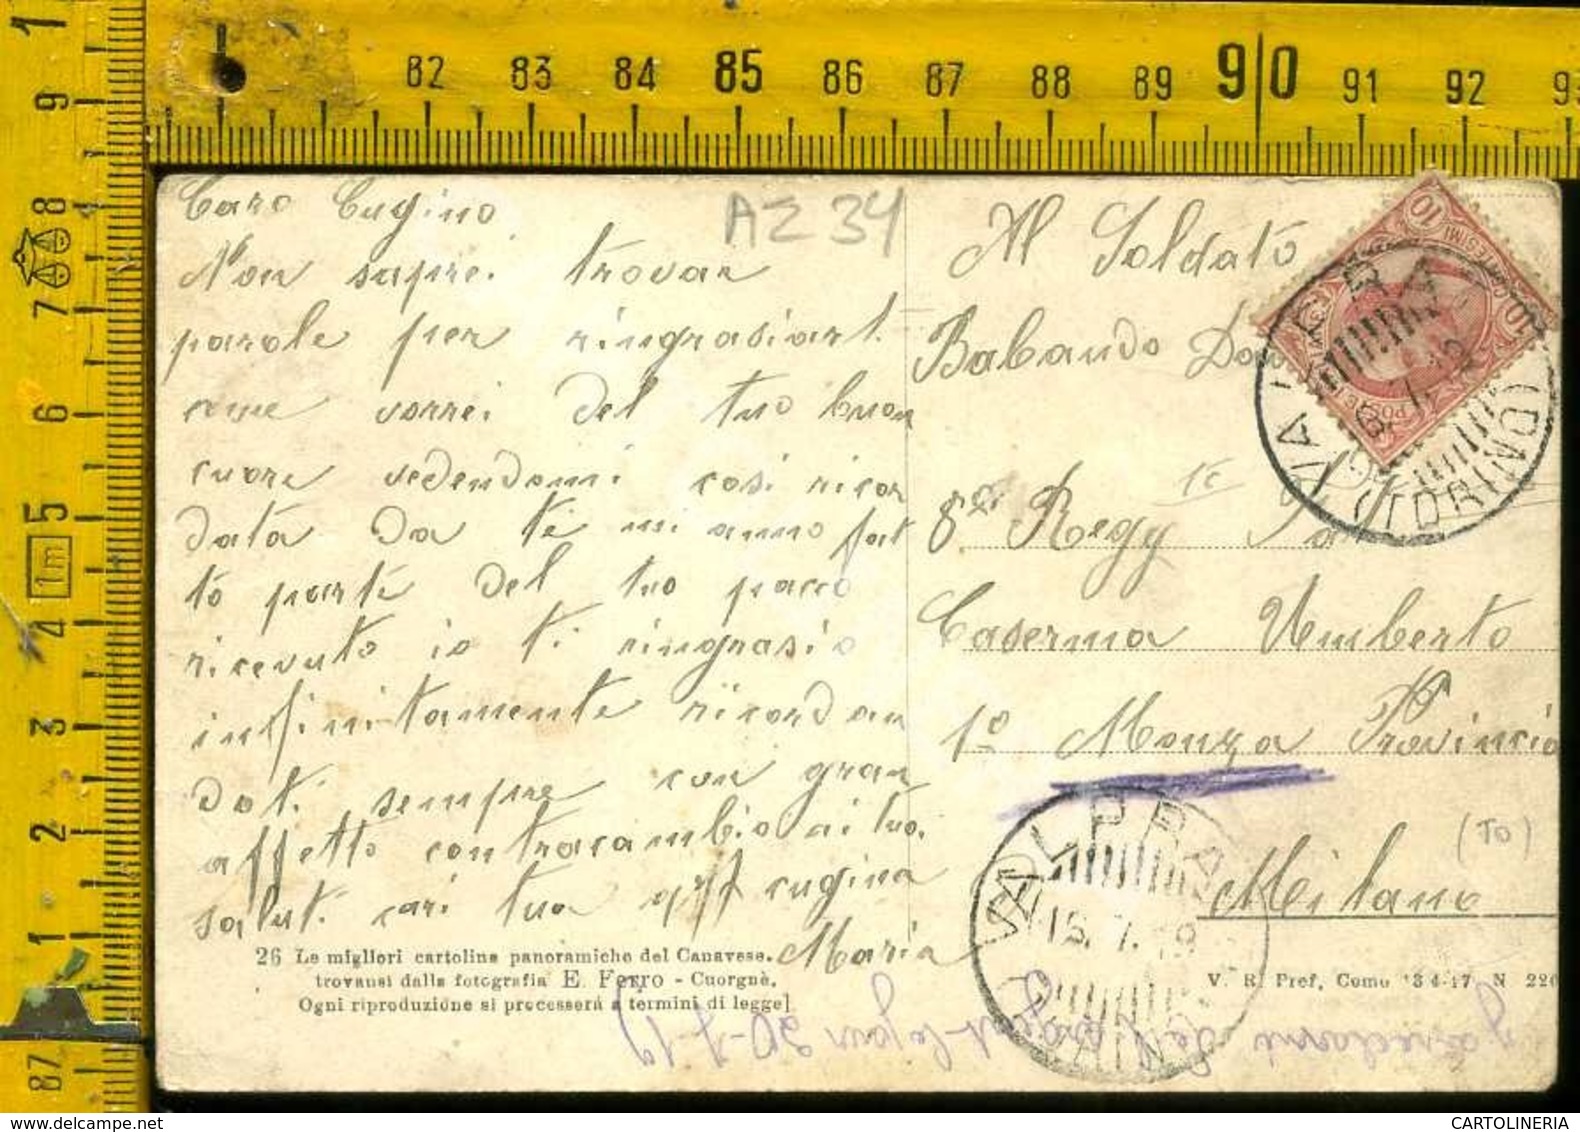 82 83 84 85 86 87 88 89 90 91 92 93
1 9 8 7 6 5 1m 4 3 2 1 87
AZ 34
Caro Cugino
Non saprei trovar
parole per ringrasiart.
come vorrei del tuo buon
cuore vedendomi così ricor
data da te mi anno fat
to parte del tuo pacco
ricevuto io ti ringrasio
infinitamente ricordan
doti sempre con gran
affetto contracambio ai tuo.
saluti cari tua aff cugina
Maria
26 Le migliori cartoline panoramiche del Canavese.
trovansi dalla fotografia E. Ferro - Cuorgnè.
Ogni riproduzione si processerà a termini di legge]
Al Soldato
Babando
8° Regg
Caserma Umberto
1° Monza Provincia
Milano
(TO)
10 CENTESIMI 10
POSTE ITALIANE
VALPRA
(TORINO)
VALPRA
15.7.19
V. R. Pref. Como 13-4-17 N 220
20-7-19
CARTOLINERIA